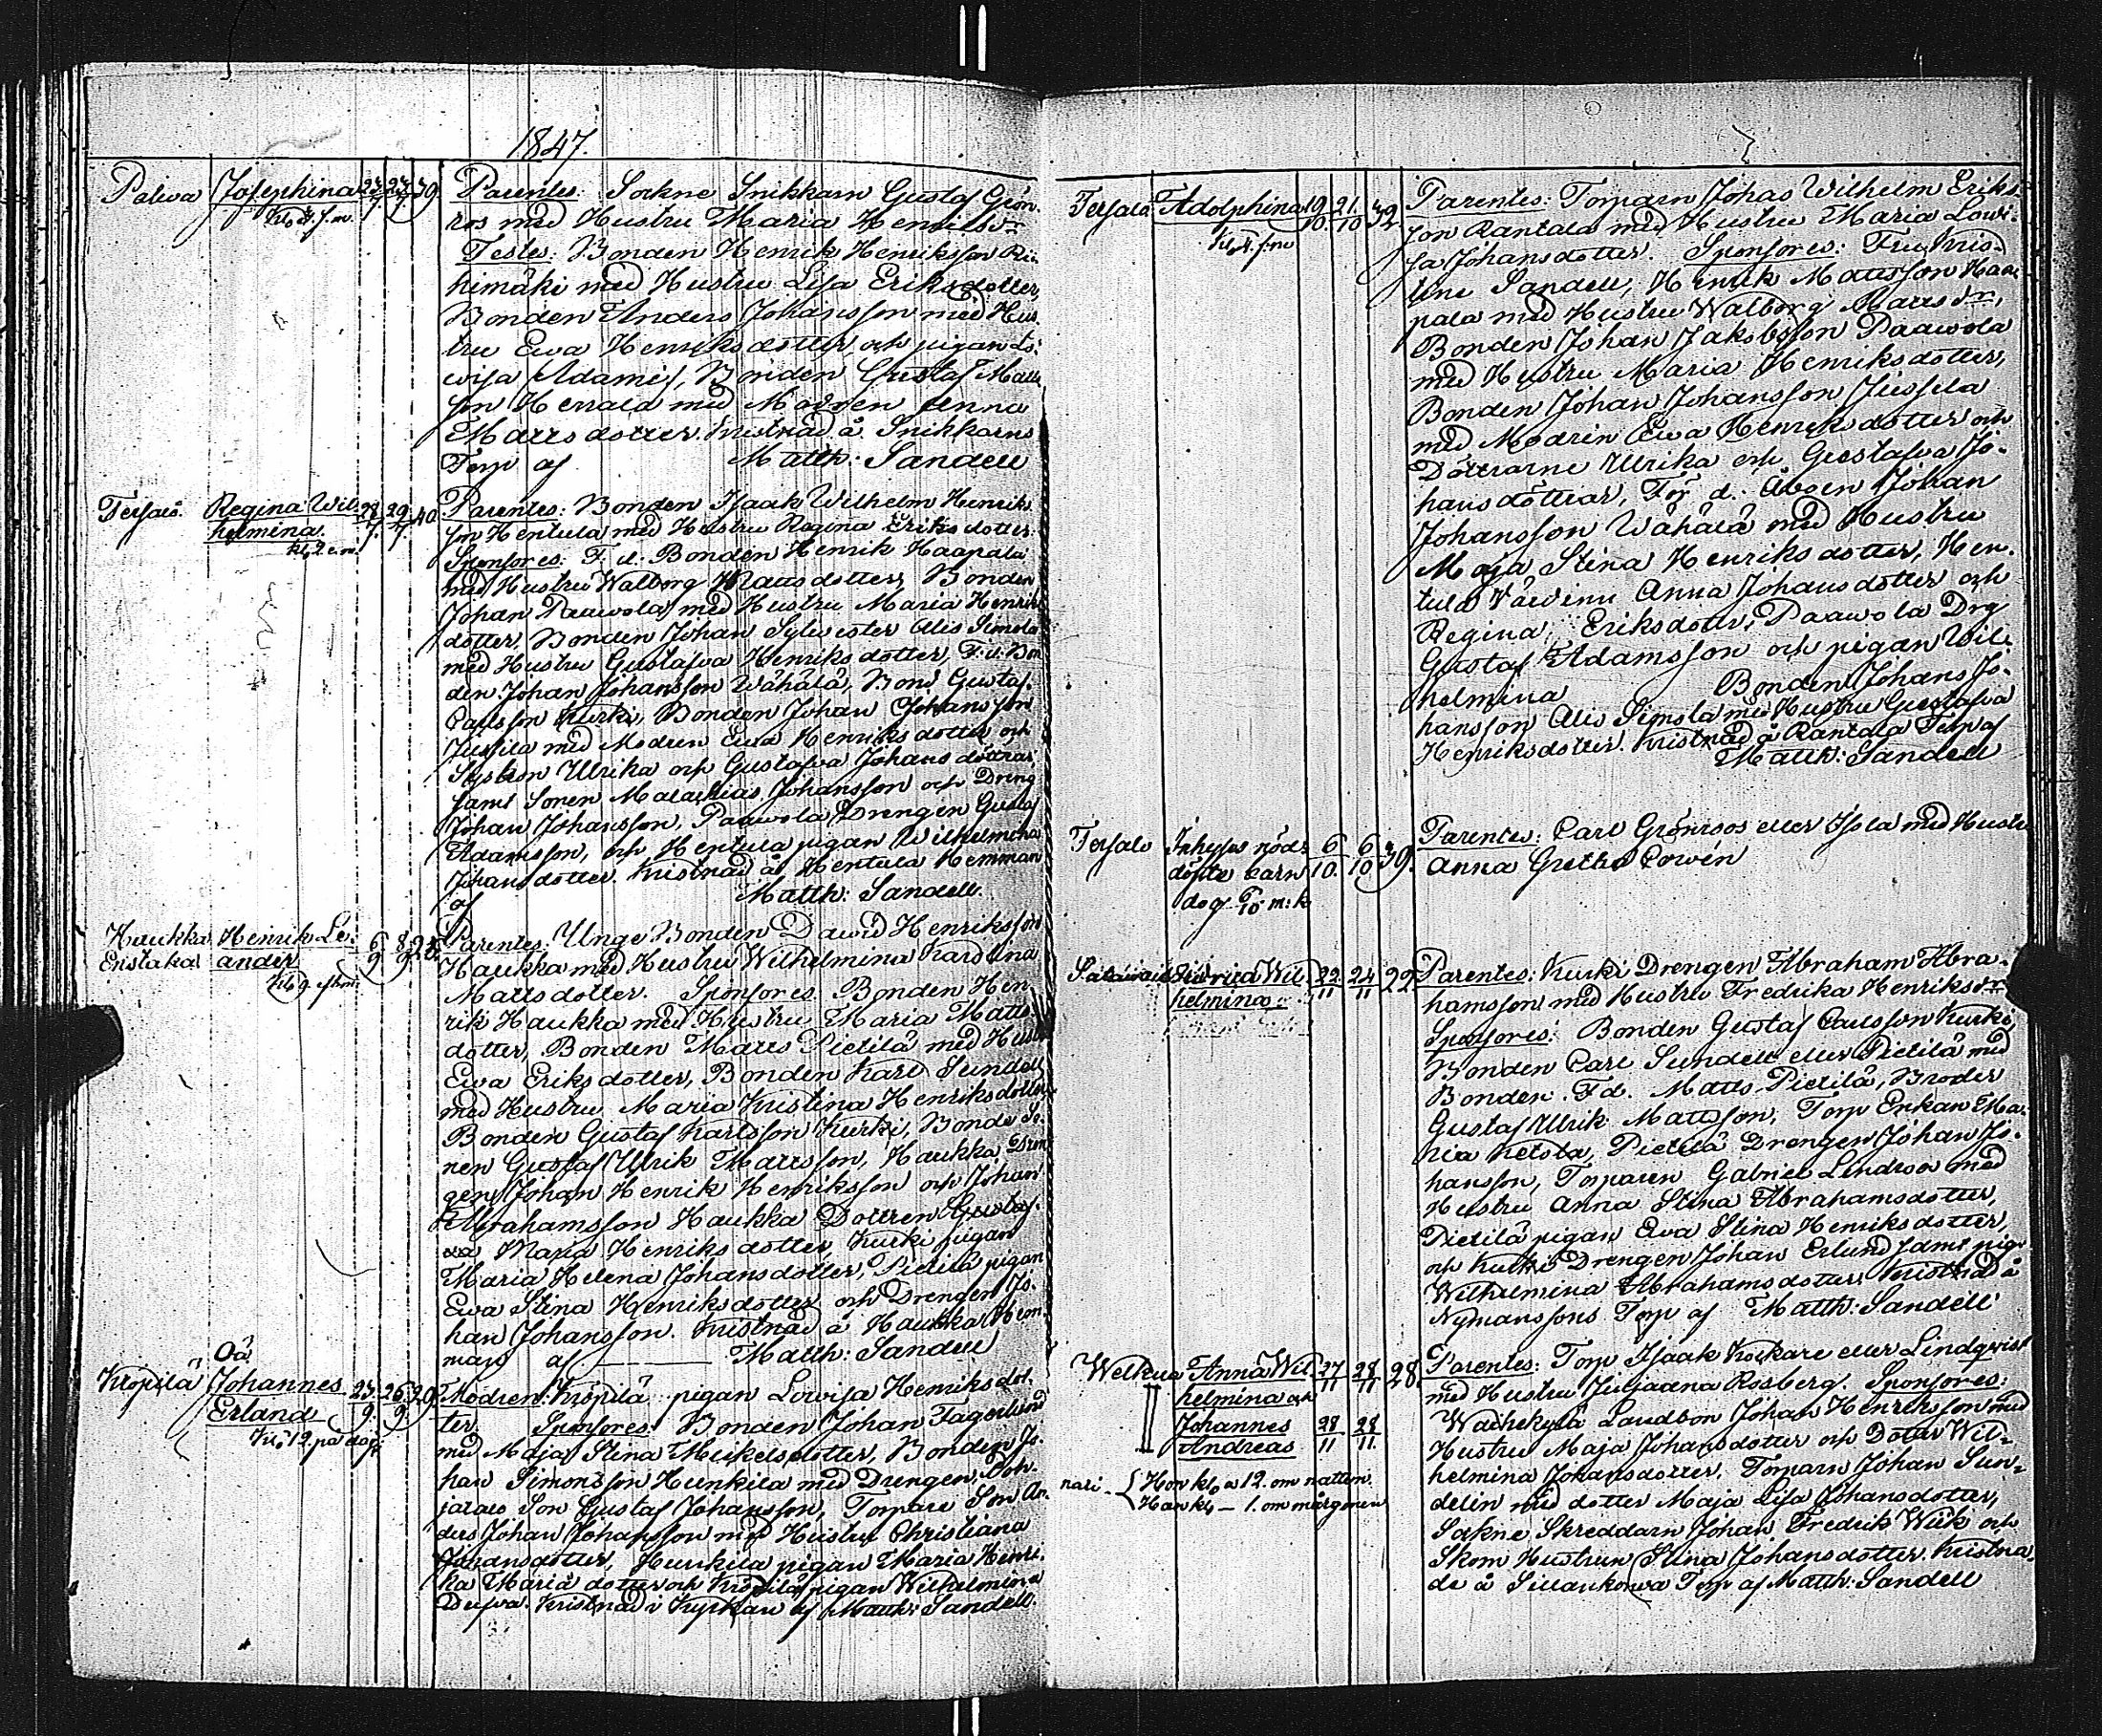 1847.
Palwa Josephina 27/7 27/7 39. Parentes: Sokne Snikkarn Gustaf Grön-
kl. 4 f.m. ros med Hustru Maria Henriksdr
Testes: Bonden Henrik Henriksson Ri-
himäki med Hustru Lisa Eriksdotter,
Bonden Anders Johansson med Hus-
tru Ewa Henriksdotter och pigan Lo-
wisa Adami, Bonden Gustaf Matts
son Herrala med Modren Anna
Mattsdotter. Kristnad å Snikkarns
Torp af Matth: Sandell
Tersalo Regina Wil- 28/7. 29/7. 40. Parentes: Bonden Isaak Wilhelm Henriks
helmina. son Hentula med Hustru Regina Eriksdotter.
kl. 2 e.m. Sponsores: F. d. Bonden Henrik Haapala
med Hustru Walborg Mattsdotter, Bonden
Johan Paawola med Hustru Maria Henriks
dotter, Bonden Johan Sylwester Alis Simola
med Hustru Gustafva Henriksdotter, F. d. Bon
den Johan Johansson Wähälä, Bond Gustaf
Carlsson Kurki, Bonden Johan Johansson
Jussila med Modren Ewa Henriksdotter och
Syskon Ulrika och Gustafva Johansdöttrar,
samt Sonen Malachias Johansson och Dreng
Johan Johansson, Paawola Drengen Gustaf
Adamsson, och Hentula pigan Wilhelmina
Johansdotter. Kristnad å Hentula Hemman
af Matth: Sandell.
Haukka Henrik Le- 6/9 8/9 Parentes: Unge Bonden Dawid Henriksson
Enstaka ander Haukka med Hustru Wilhelmina Karolina
kl. 9 Mattsdotter. Sponsores. Bonden Hen-
rik Haukka med Hustru Maria Matts
dotter, Bonden Matts Pietilä med Hustru
Ewa Eriksdotter, Bonden Karl Sundell
med Hustru Maria Kristina Henriksdotter
Bonden Gustaf Karlsson Kurki, Bonde So-
nen Gustaf Ulrik Mattsson, Haukka Dren
gen Johan Henrik Henriksson och Johan
Abrahamsson Haukka Dottren Gustaf-
va Maria Henriksdotter, Kurki pigan
Maria Helena Johansdotter, Pietilä pigan
Ewa Stina Henriksdotter och Drengen Jo-
han Johansson. Kristnad å Haukka Hem
man af Matth: Sandell
Oä
Kröpilä Johannes 25/9. 26/9 29. Modren: Kröpilä pigan Lowisa Henriksdot-
Erland ter. Sponsores: Bonden Johan Fagerlund
kl. 12 på dag. med Maja Stina Mickelsdotter, Bonden Jo-
han Simonsson Hunkila med Drengen,
Son Gustaf Johansson, Torpare Son An-
ders Johan Johansson med Hustru Christiana
Johansdotter, Hunkila pigan Maria Henri-
ka Maria dotter och Kröpilä pigan Wilhelmina
Kristnad i Kyrkan af Matth: Sandell.
Tersalo Adolphina 19/10. 21./10 32 Parentes: Torparn Johan Wilhelm Eriks-
kl. 4. f.m son Rantala med Hustru Maria Lowi-
sa Johansdotter. Sponsores: Fru Kris-
tine Sandell, Henrik Mattsson Haa-
pala med Hustru Walborg Mattsdr,
Bonden Johan Jakobsson Paawola
med Hustru Maria Henriksdotter,
Bonden Johan Johansson Jussila
med Modrin Ewa Henriksdotter och
Döttrarne Ulrika och Gustafva Jo-
hansdöttrar, För d. Åboen Johan
Johansson Wähälä med Hustru
Maja Stina Henriksdotter, Hen-
tula Anna Johansdotter och
Regina Eriksdotter, Paawola Drg
Gustaf Adamsson och pigan Wil-
helmina Bonden Johans Jo-
hansson Alis Simola med Hustru Gustafva
Henriksdotter. Kristnad å Rantala Torp af
Matth: Sandell
Tersalo Inhyses nöd- 6/10. 6/10 39. Parentes: Carl Grönroos eller Isola med Hustru
döpte barn Anna Greta Lowén
dog 6/10 m: k.
Wil- 22./11 24/11 22 Parentes: Kurki Drengen Abraham Abra-
helmina hamsson med Hustru Fredrika Henriksdr
Sponsores: Bonden Gustaf Carlsson Kurki,
Bonden Carl Sundell eller Pietilä med
Bonden F.d. Matts Pietilä, Broder
Gustaf Ulrik Mattsson, Torp Enkan Ma-
ria Ketola, Pietilä Drengen Johan Jo-
hansson, Torparen Gabriel Lindroos med
Hustru Anna Stina Abrahamsdotter,
Pietilä pigan Ewa Stina Henriksdotter,
och Kurki Drengen Johan Erlund samt pigan
Wilhelmina Abrahamsdotter. Kristnad å
Nymanssons Torp af Matth: Sandell
Welkua Anna Wil- 27/11 28/11 28. Parentes: Torp Isaak Kockare eller Lindqwist
helmina och med Hustru Juljaana Rosberg. Sponsores:
Johannes 28/11 28/11. Landbon Johan Henriksson med
Andreas Hustru Maja Johansdotter och Dotter Wil-
helmina Johansdotter, Torparn Johan Sun-
Hon kl. 12. om natten. delin med dotter Maja Lisa Johansdotter,
Han kl. – 1. om morgonen Sokne Skreddarn Johan Fredrik Wiik och
Hustrun Stina Johansdotter. Kristna-
de å Sillankorwa Torp af Matth: Sandell